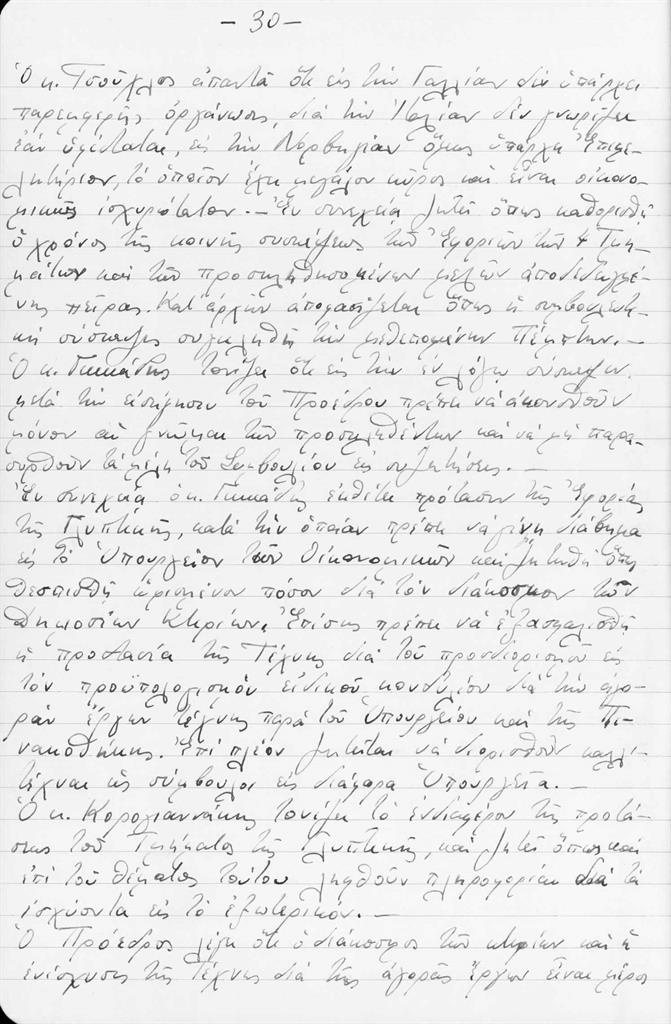 - 30 -
Ὁ κ. Τσοῦχλος ἀπαντᾶ ὅτι εἰς τὴν Γαλλίαν δὲν ὑπάρχει
παρεμφερὴς ὀργάνωσις, διὰ τὴν Ἰταλίαν δὲν γνωρίζει
ἐὰν ὑφίσταται, εἰς τὴν Νορβηγίαν ὅμως ὑπάρχει Ἐπιμε-
λητήριον, τὸ ὁποῖον ἔχει μεγάλον κῦρος καὶ εἶναι οἰκονο-
μικῶς ἰσχυρότατον. - Ἐν συνεχείᾳ ζητεῖ ὅπως καθορισθῇ
ὁ χρόνος τῆς κοινῆς συσκέψεως τῶν Ἐφοριῶν τῶν 4 Τμη-
μάτων καὶ τῶν προσκληθησομένων μελῶν ἀποδεδειγμέ-
νης πείρας. Κατ' ἀρχὴν ἀποφασίζεται ὅπως ἡ συμβουλευτι-
κὴ σύσκεψις συγκληθῇ τὴν μεθεπομένην Πέμπτην. -
Ὁ κ. τονίζει ὅτι εἰς τὴν ἐν λόγῳ σύσκεψιν
μετὰ τὴν εἰσήγησιν τοῦ Προέδρου πρέπει νὰ ἀκουσθοῦν
μόνον αἱ γνῶμαι τῶν προσκληθέντων καὶ νὰ μὴ παρα-
συρθοῦν τὰ μέλη τοῦ Συμβουλίου εἰς συζητήσεις. -
Ἐν συνεχείᾳ ὁ κ. ἐκθέτει πρότασιν τῆς Ἐφορίας
τῆς Γλυπτικῆς, κατὰ τὴν ὁποίαν πρέπει νὰ γίνῃ διάβημα
εἰς τὸ Ὑπουργεῖον τῶν Οἰκονομικῶν καὶ ζητηθῇ ὅπως
θεσπισθῇ ὡρισμένον ποσὸν διὰ τὸν διάκοσμον τῶν
Δημοσίων Κτηρίων. Ἐπίσης πρέπει νὰ ἐξασφαλισθῇ
ἡ προστασία τῆς Τέχνης διὰ τοῦ προσδιορισμοῦ εἰς
τὸν προϋπολογισμὸν εἰδικοῦ κονδυλίου διὰ τὴν ἀγο-
ρὰν ἔργων τέχνης παρὰ τοῦ Ὑπουργείου καὶ τῆς Πι-
νακοθήκης. Ἐπὶ πλέον ζητεῖται νὰ διορισθοῦν καλλι-
τέχναι ὡς σύμβουλοι εἰς διάφορα Ὑπουργεῖα. -
Ὁ κ. Καρολιαννάκης τονίζει τὸ ἐνδιαφέρον τῆς προτά-
σεως τοῦ Τμήματος τῆς Γλυπτικῆς, καὶ ζητεῖ ὅπως καὶ
ἐπὶ τοῦ θέματος τούτου ληφθοῦν πληροφορίαι διὰ τὰ
ἰσχύοντα εἰς τὸ ἐξωτερικόν. -
Ὁ Πρόεδρος λέγει ὅτι ὁ διάκοσμος τῶν κτηρίων καὶ ἡ
ἐνίσχυσις τῆς Τέχνης διὰ τῆς ἀγορᾶς ἔργων εἶναι μέρος